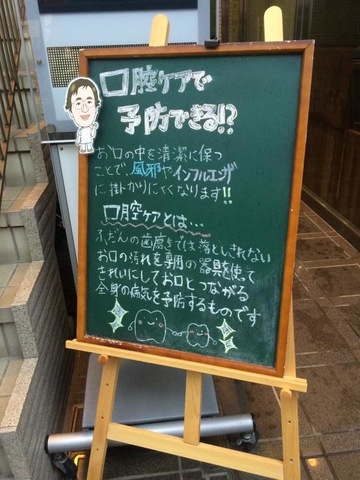 口腔ケアで
予防できる!?
お口の中を清潔に保つ
ことで、風邪やインフルエンザ
に掛かりにくくなります!!
口腔ケアとは…
ふだんの歯磨きでは落としきれない
お口の汚れを専用の器具を使て
きれいにしてお口とつながる
全身の病気を予防するものです